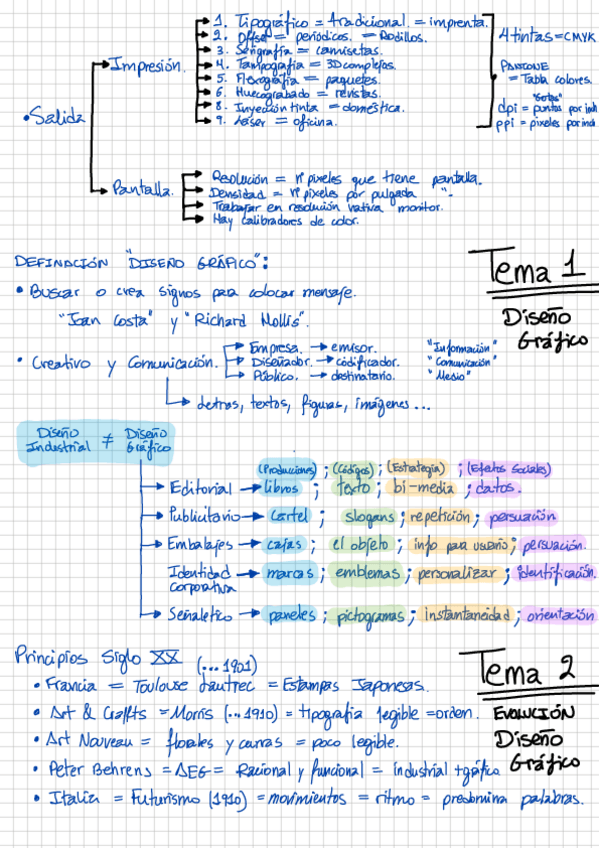 1. Tipográfico = tradicional = imprenta.
2. Offset = periódicos. = Rodillos.
3. Serigrafía = camisetas.
4. Tampografía = 3D complejos.
5. Flexografía = paquetes.
6. Huecograbado = revistas.
8. Inyección tinta = doméstica.
9. Láser = oficina.
4 tintas = CMYK
PANTONE
= Tabla colores.
"Gotas"
dpi = puntos por inch
ppi = pixeles por inch
• Salida
Impresión.
Pantalla.
Resolución = nº pixeles que tiene pantalla.
Densidad = nº pixeles por pulgada "-
Trabajar en resolución nativa monitor.
Hay calibradores de color.
DEFINACIÓN "DISEÑO GRÁFICO":
Tema 1
Diseño
Gráfico
• Buscar o crea signos para colocar mensaje.
"Joan Costa" y "Richard Hollis".
• Creativo y Comunicación.
Empresa. → emisor. "Información"
Diseñador. → codificador. "Comunicación"
Público. → destinatario. "Medio"
Letras, textos, figuras, imágenes ...
Diseño Industrial ≠ Diseño Gráfico
(Producciones) ; (Códigos) ; (Estrategia) ; (Efectos Sociales)
Editorial → libros ; texto ; bi-media ; datos.
Publicitario → cartel ; slogans ; repetición ; persuación
Embalajes → cajas ; el objeto ; info para usuario ; persuación.
Identidad corporativa → marcas ; emblemas ; personalizar ; identificación.
Señalético → paneles ; pictogramas ; instantaneidad ; orientación
Principios Siglo XX (... 1901)
Tema 2
EVOLUCIÓN
Diseño
Gráfico
• Francia = Toulouse Lautrec = Estampas Japonesas.
• Art & Craffts = Morris (... 1910) = tipografía legible = orden.
• Art Nouveau = florales y curvas = poco legible.
• Peter Behrens = AEG = Racional y funcional = industrial + gráfico
• Italia = Futurismo (1910) = movimientos = ritmo = predomina palabras.